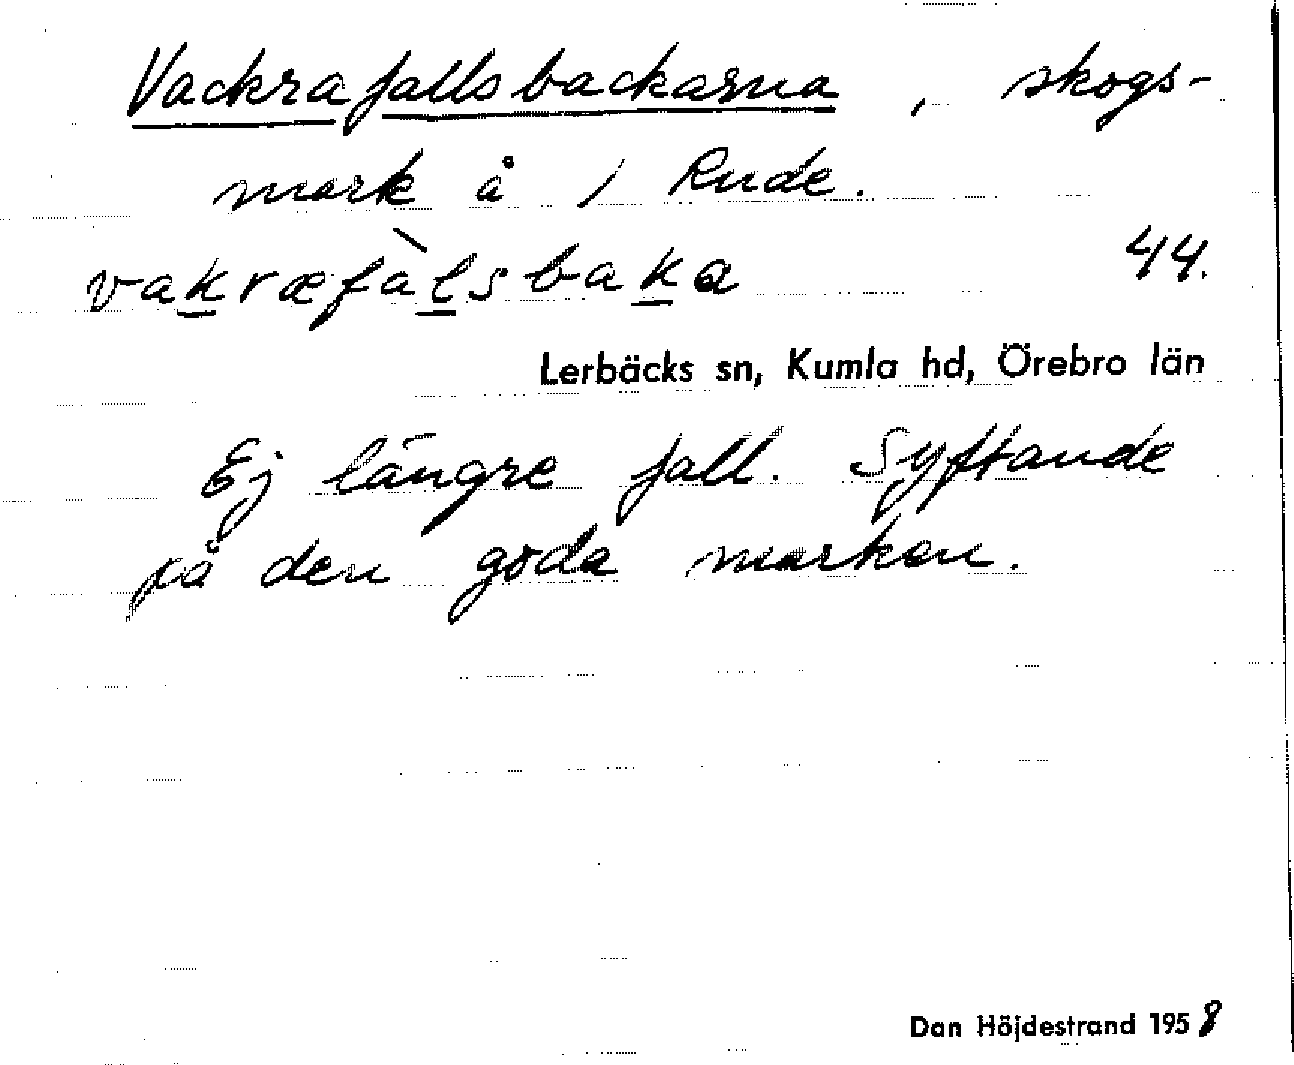 Vackrafallsbackarna, skogs-
mark å / Rude.
vakræfàlsbaka 44.
Lerbäcks sn, Kumla hd, Örebro län
Ej längre fall. Syftande
på den goda marken.
Dan Höjdestrand 1958